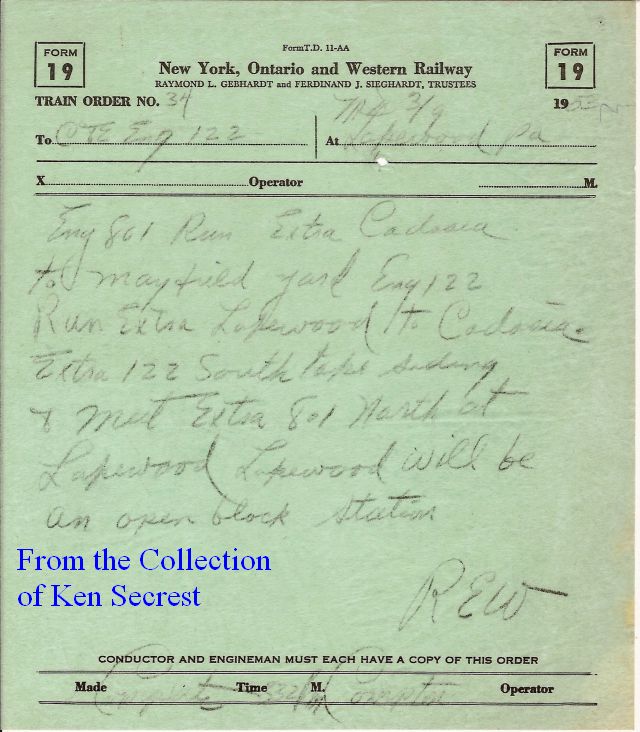 FormT.D. 11-AA
FORM 19
FORM 19
New York, Ontario and Western Railway
RAYMOND L. GEBHARDT and FERDINAND J. SIEGHARDT, TRUSTEES
TRAIN ORDER NO. 34 3/9 1953
To C&E Eng 122 At Lakewood Pa
X Operator M.
Eng 801 Run Extra Cadosia
to mayfield yard Eng 122
Run Extra Lakewood to Cadosia
Extra 122 South take siding
& meet Extra 801 North at
Lakewood Lakewood will be
an open block station
From the Collection
of Ken Secrest
REW
CONDUCTOR AND ENGINEMAN MUST EACH HAVE A COPY OF THIS ORDER
Made Complete Time M. Compton Operator